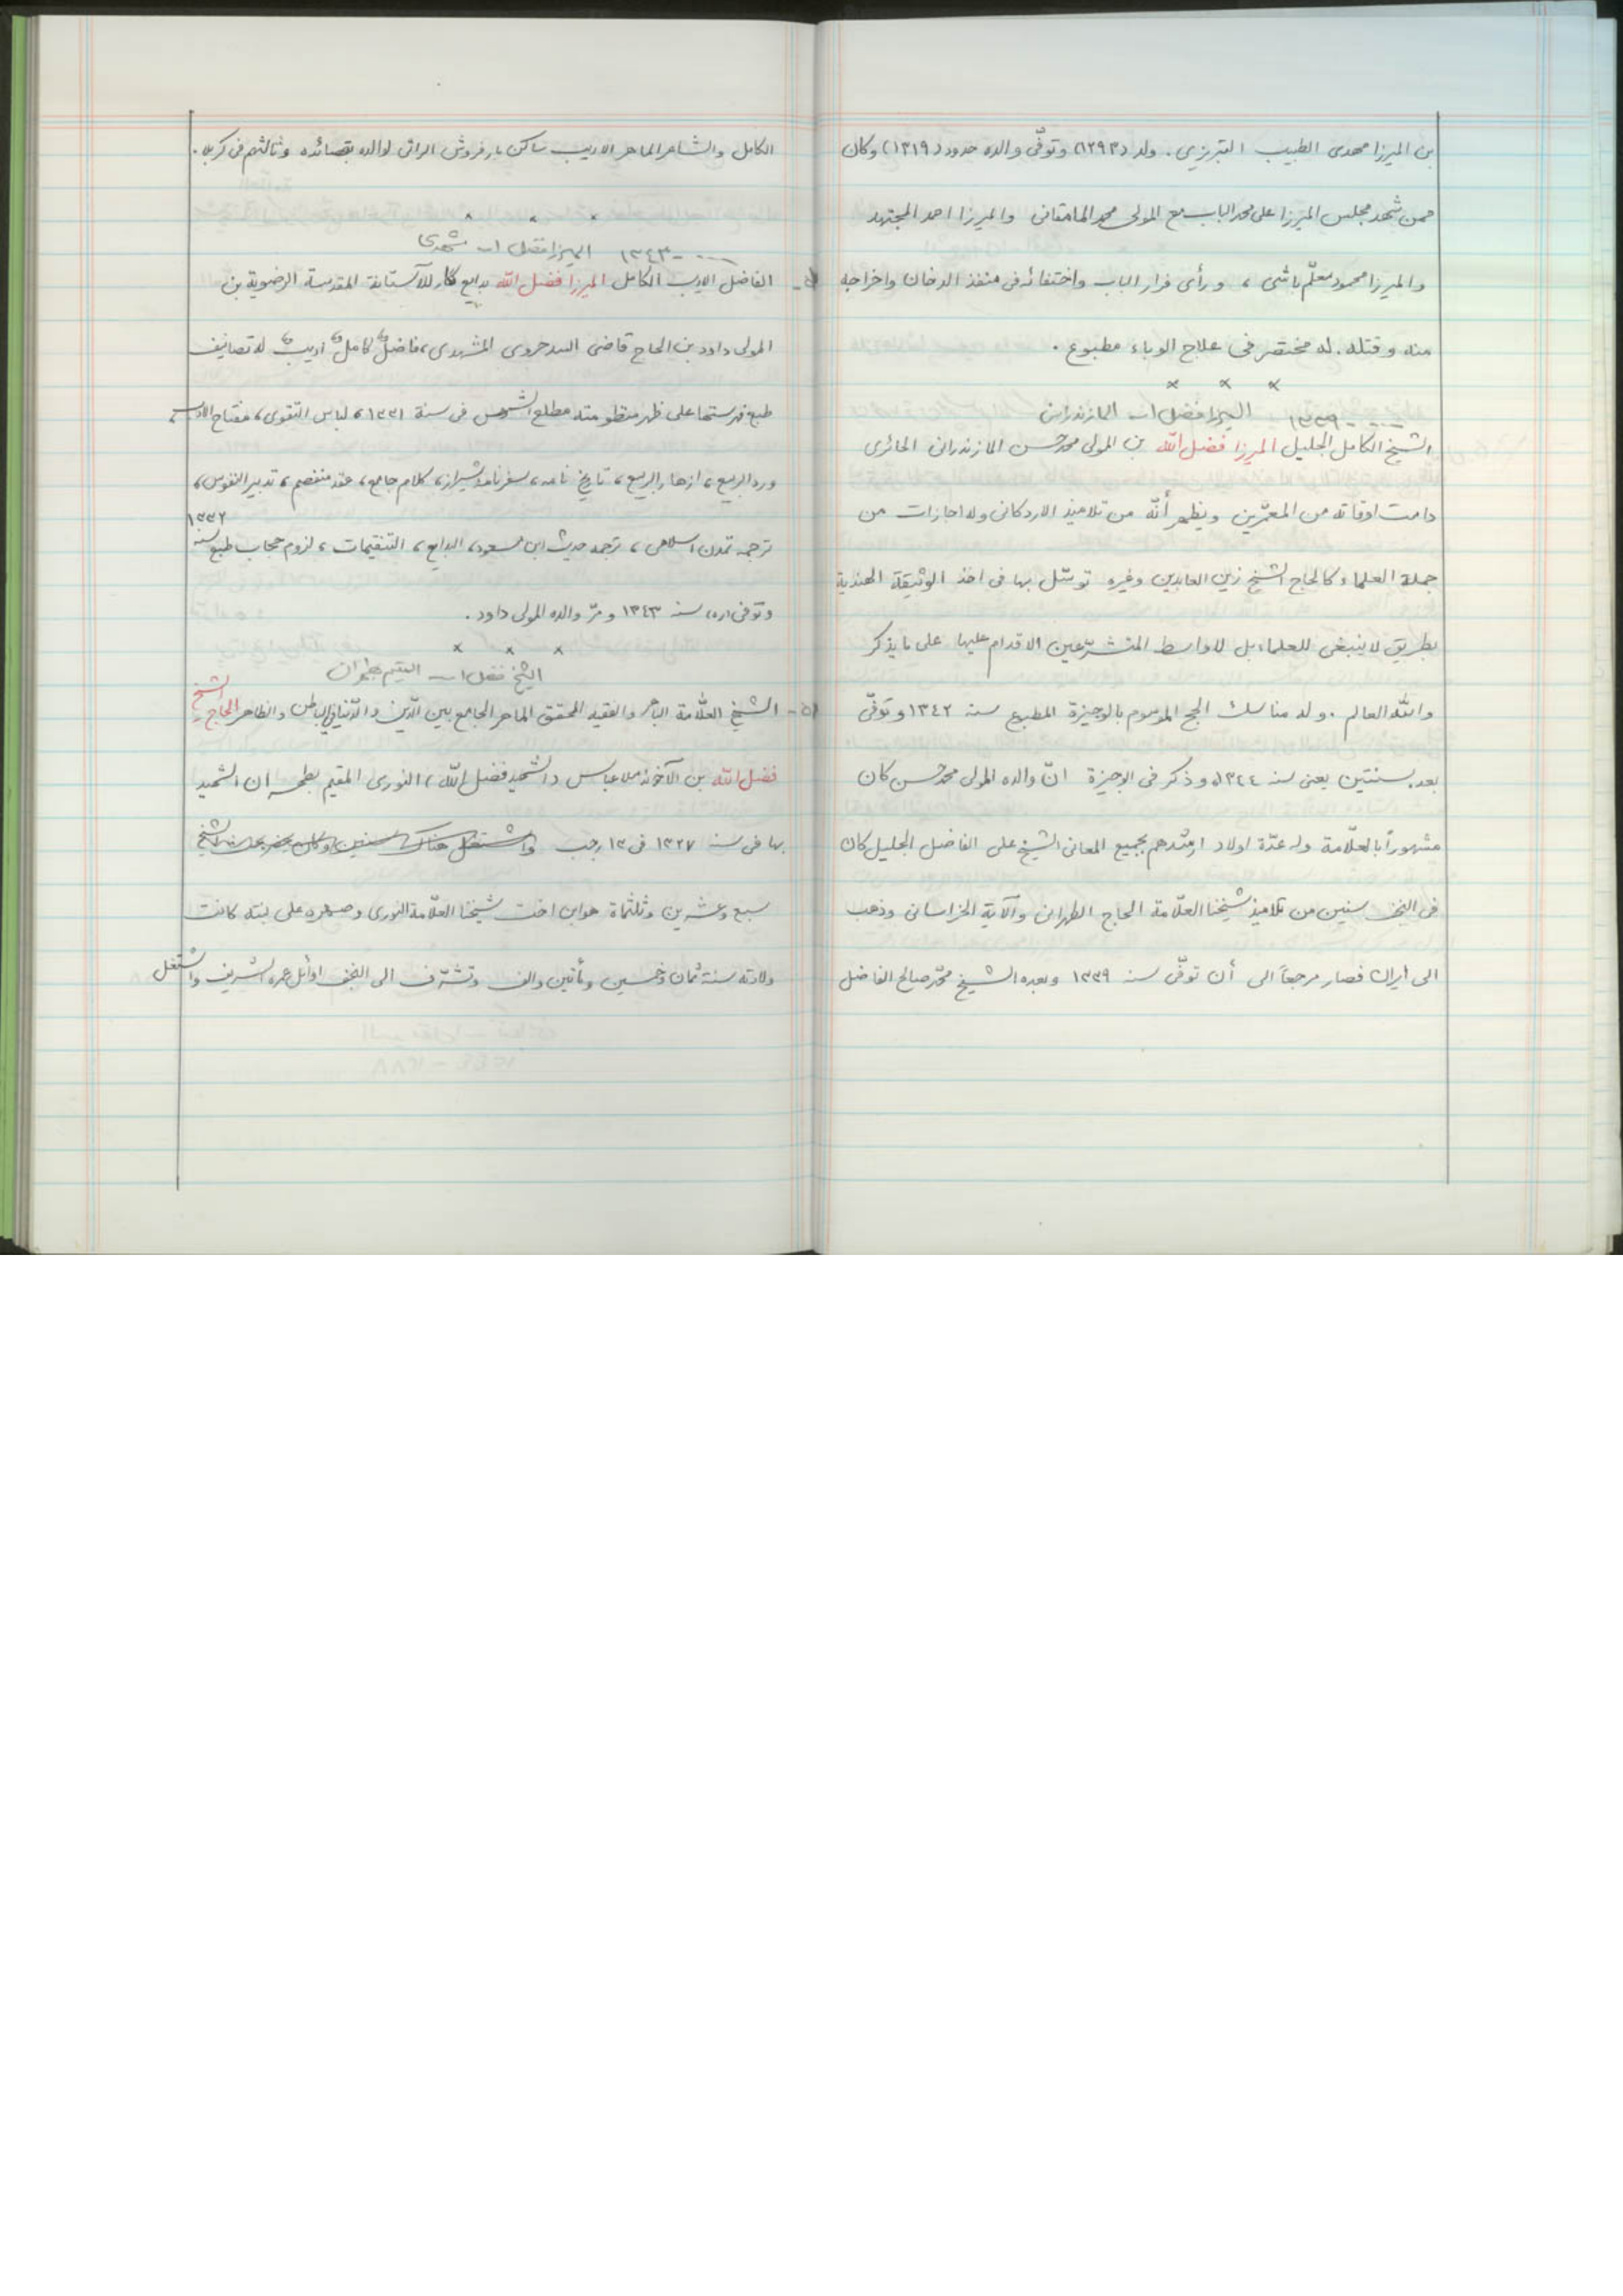 بن الميرزا مهدى الطبيب التبريزى . ولد (١٢٩٣) وتوفّى والده حدود (١٣١٩) وكان
ممن شهد مجلس الميرزا على محمد الباب مع المولى محمد المامقانى والميرزا احمد المجتهد
والميرزا محمود معلّم باشى ، ورأى فرار الباب واختفائه فى منفذ الدخان واخراجه
منه وقتله . له مختصر فى علاج الوباء مطبوع .
× × ×
الميرزا فضل الله المازندرانى .... - ١٣٣٩
الشيخ الكامل الجليل الميرزا فضل الله بن المولى محمد حسن المازندرانى الحائرى
دامت اوقاته من المعمّرين ويظهر أنّه من تلاميذ الاردكانى وله اجازات من
جملة العلماء كالحاج الشيخ زين العابدين وغيره توسّل بها فى اخذ الوثيقة الهندية
بطريق لا ينبغى للعلماء بل لاواسط المتشرّعين الاقدام عليها على ما يذكر
والله العالم . وله مناسك الحج الموسوم بالوجيزة المطبوع سنة ١٣٤٢ وتوفّى
بعد سنتين يعنى سنه ١٣٤٤ وذكر فى الوجيزة انّ والده المولى محمد حسن كان
مشهوراً بالعلّامة وله عدّة اولاد ارشدهم بجميع المعانى الشيخ على الفاضل الجليل كان
فى النجف سنين من تلاميذ شيخنا العلّامة الحاج الطهرانى وآلاية الخراسانى وذهب
الى ايران فصار مرجعاً الى أن توفّى سنه ١٣٣٩ وبعده الشيخ محمّد صالح الفاضل
الكامل والشاعر الماهر الاديب ساكن بارفروش الراثى لوالده بقصائده وثالثهم فى كربلا .
× × ×
الميرزا فضل الله مشهدى .... - ١٣٤٣
الفاضل الاديب الكامل الميرزا فضل الله بدايع نگار للآستانة المقدسة الرضوية بن
المولى داود بن الحاج قاضى السدحروى المشهدى ، فاضل كامل اديب له تصانيف
طبع فهرستها على ظهر منظومته مطلع الشمس فى سنة ١٣٣١ ، لباس التقوى ، مفتاح الادب ،
ورد الربيع ، ازهار الربيع ، تاريخ نامه ، سفرنامه شيراز ، كلام جامع ، عقد منفصم ، تدبير النفوس ،
ترجمه تمدن اسلامى ، ترجمه حديث ابن مسعود ، البدايع ، التنقيمات ، لزوم حجاب طبع سنه ١٣٣٢
وتوفى (ره) سنه ١٣٤٣ ومرّ والده المولى داود .
× × ×
الشيخ فضل الله المقيم بطهران
الشيخ العلّامة البارع والفقيه المحقق الماهر الجامع بين الدّين والدّنيا فى الباطن والظاهر الحاج الشيخ
فضل الله بن الآخوند ملا عباس (الشهيد فضل الله) النورى المقيم بطهران الشهيد
بها فى سنه ١٣٢٧ فى ١٣ رجب واشتغل هناك سنين وكان يحضر بحث الشيخ
سبع وعشرين وثلثمأة هو ابن اخت شيخنا العلّامة النورى وصهره على بنته كانت
ولادته سنة ثمان وخمسين ومأتين والف وتشرّف الى النجف اوائل عمره الشريف واشتغل